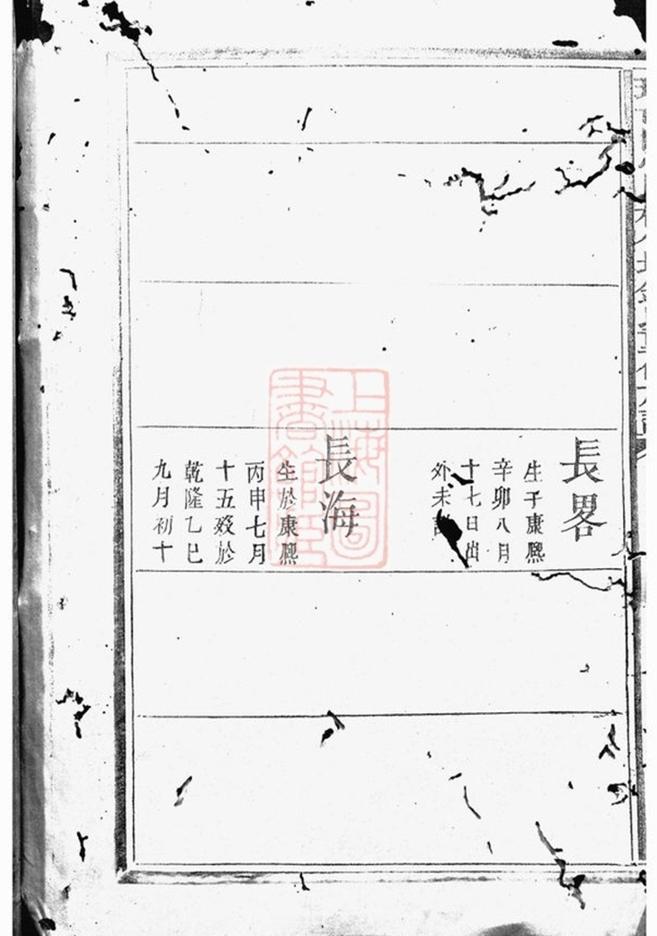 長畧
生于康熙
辛卯八月
十七日出
外未
長海
生於康熙
丙申七月
十五殁於
乾隆乙巳
九月初十
上海圖
書館藏